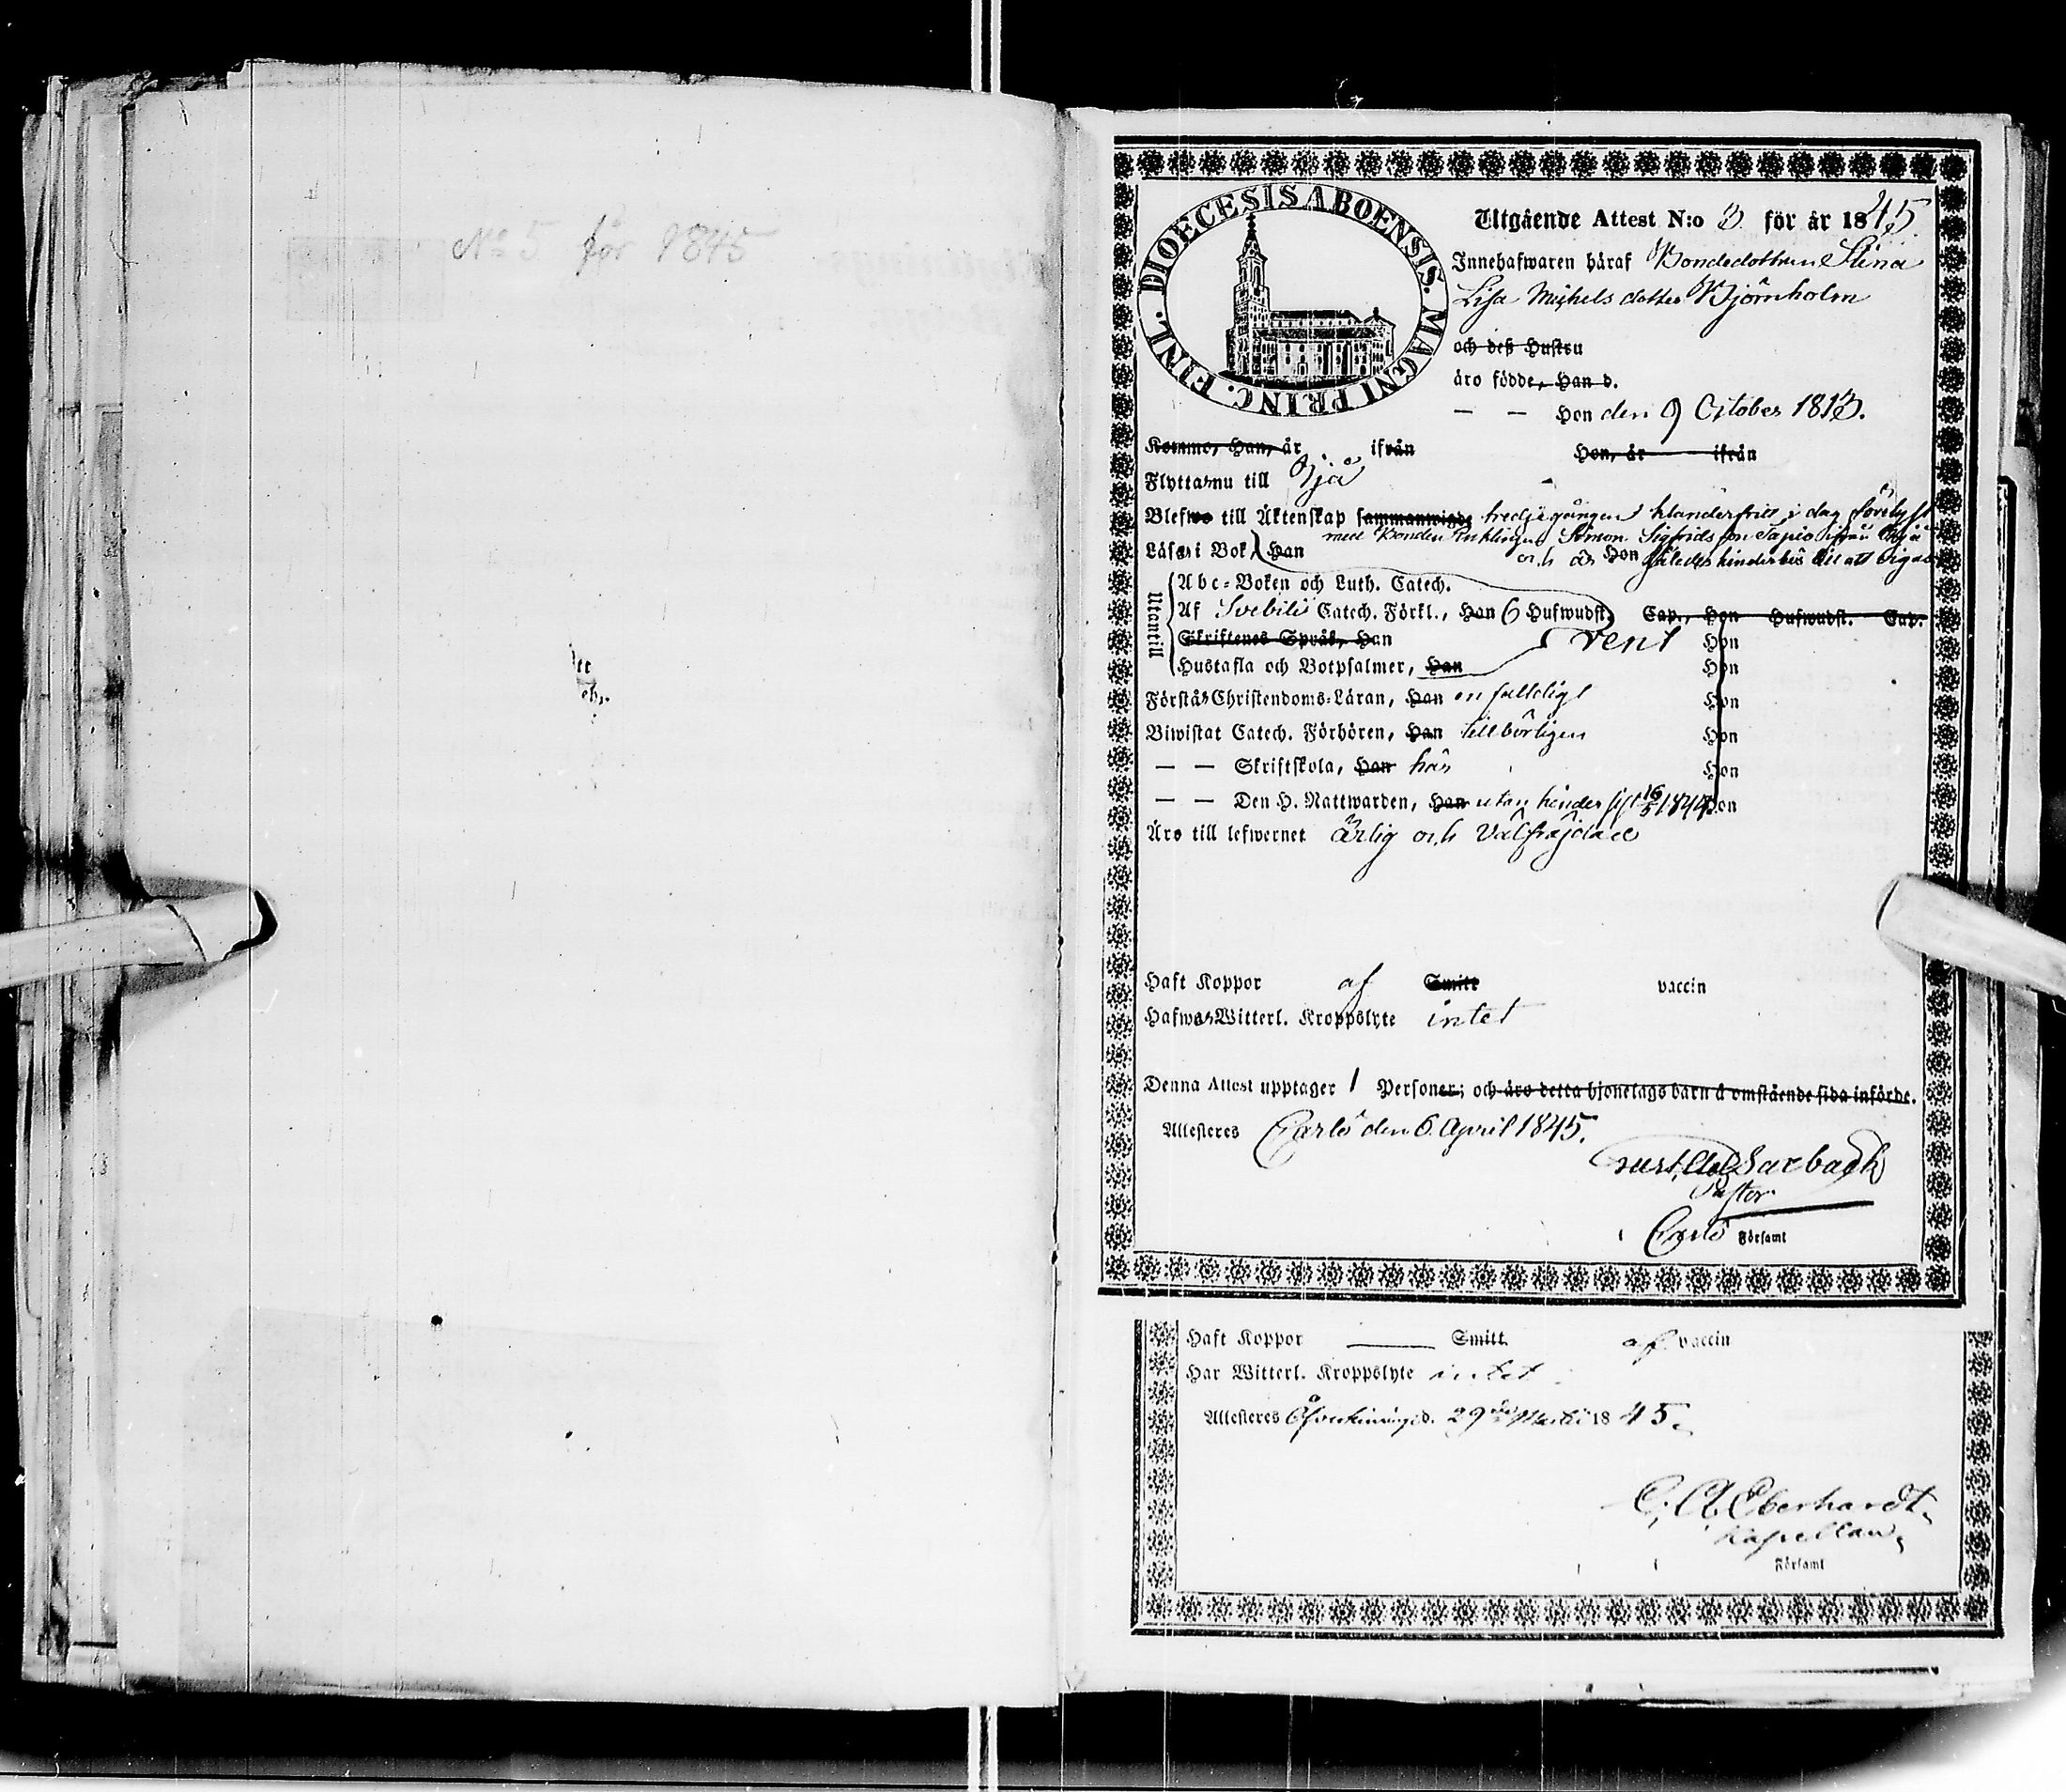 No 5 för 1845
DIOECESIS ABOENSIS. MAGNI PRINC. FINL.
Utgående Attest N:o 3 för år 1845.
Innehafwaren häraf Bondedottren Stina
Lisa Michels dotter Björnholm
och deß Hustru
äro födde, Han d.
— — Hon den 9 October 1813.
Komne, Han, år ifrån Hon, år ifrån
Flyttar nu till Pyjä
Blefwo till Äktenskap sammanwigde tredje gången klanderfritt i dag förelyst
med Bonden Simon Sigfridsson Tapio ifrån
och är således hinderlös till att vigas
Läser i Bok, Han Hon
Utantill
Abc-Boken och Luth. Catech.
Af Svebilii Catech. Förkl., Han 6 Hufwudst. Cap., Hon Hufwudst. Cap.
Skriftenes Språk, Han rent Hon
Hustafla och Botpsalmer, Han Hon
Förstår Christendoms-Läran, Han enfaldigt Hon
Biwistat Catech. Förhören, Han tillbörligen Hon
— — Skriftskola, Han här Hon
— — Den H. Nattwarden, Han utan hinder sist 16/5 1844 Hon
Äro till lefwernet ärlig och välfräjdad
Haft Koppor af Smitt vaccin
Hafwer Witterl. Kroppslyte intet
Denna Attest upptager 1 Personer; och äro detta hjonelags barn å omstående sida införde.
Attesteres Carlö den 6. April 1845.
Gust. Ad. Sarbach
Pastor
i Carlö Församl
Haft Koppor — Smitt. af vaccin
Har Witterl. Kroppslyte intet
Attesteres d. 29de Martii 1845.
C. A. Eberhardt.
Kapellan.
i Församl